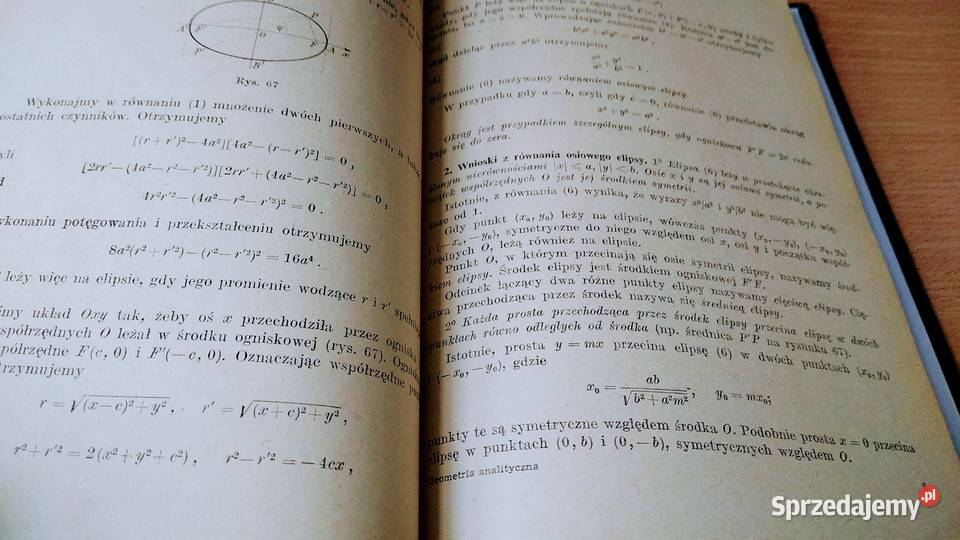 A'
F'
B'
O
φ
F
P
A
x
Rys. 67
Wykonajmy w równaniu (1) mnożenie dwóch pierwszych, a
ostatnich czynników. Otrzymujemy
[(r+r')²−4a²][4a²−(r−r')²] = 0,
[2rr'−(4a²−r²−r'²)][2rr'+(4a²−r²−r'²)] = 0,
4r²r'²−(4a²−r²−r'²)² = 0.
wykonaniu potęgowania i przekształceniu otrzymujemy
8a²(r²+r'²)−(r²−r'²)² = 16a⁴.
leży więc na elipsie, gdy jego promienie wodzące r i r'
układ Oxy tak, żeby oś x przechodziła przez ogniska
współrzędnych O leżał w środku ogniskowej (rys. 67).
F(c, 0) i F'(−c, 0). Oznaczając współrzędne
r = √(x−c)²+y², r' = √(x+c)²+y²,
r²+r'² = 2(x²+y²+c²), r²−r'² = −4cx,
b²x²+a²y² = a²b²,
dzieląc przez a²b² otrzymujemy
x²/a² + y²/b² = 1.
Równanie (6) nazywamy równaniem osiowym elipsy.
W przypadku gdy a = b, czyli gdy c = 0, równanie (6) przedstawia okrąg
x²+y² = a².
Okrąg jest przypadkiem szczególnym elipsy, gdy ogniskowa F'F = 2c redu-
kuje się do zera.
2. Wnioski z równania osiowego elipsy. 1° Elipsa (6) leży w prostokącie okre-
ślonym nierównościami |x| ≤ a, |y| ≤ b. Osie x i y są jej osiami symetrii, a po-
czątek współrzędnych O jest jej środkiem symetrii.
Istotnie, z równania (6) wynika, że wyrazy x²/a² i y²/b² nie mogą być więk-
sze od 1.
Gdy punkt (x₀, y₀) leży na elipsie, wówczas punkty (x₀, −y₀), (−x₀, y₀)
i (−x₀, −y₀), symetryczne do niego względem osi x, osi y i początku współ-
rzędnych O, leżą również na elipsie.
Punkt O, w którym przecinają się osie symetrii elipsy, nazywamy środ-
kiem elipsy. Środek elipsy jest środkiem ogniskowej F'F.
Odcinek łączący dwa różne punkty elipsy nazywamy cięciwą elipsy. Cię-
ciwa przechodząca przez środek nazywa się średnicą elipsy.
2° Każda prosta przechodząca przez środek elipsy przecina elipsę w dwóch
punktach równo odległych od środka (np. średnica P'P na rysunku 67).
Istotnie, prosta y = mx przecina elipsę (6) w dwóch punktach (x₀, y₀)
i (−x₀, −y₀), gdzie
x₀ = ab/√b²+a²m², y₀ = mx₀;
punkty te są symetryczne względem środka O. Podobnie prosta x = 0 przecina
elipsę w punktach (0, b) i (0, −b), symetrycznych względem O.
Geometria analityczna
Sprzedajemy.pl